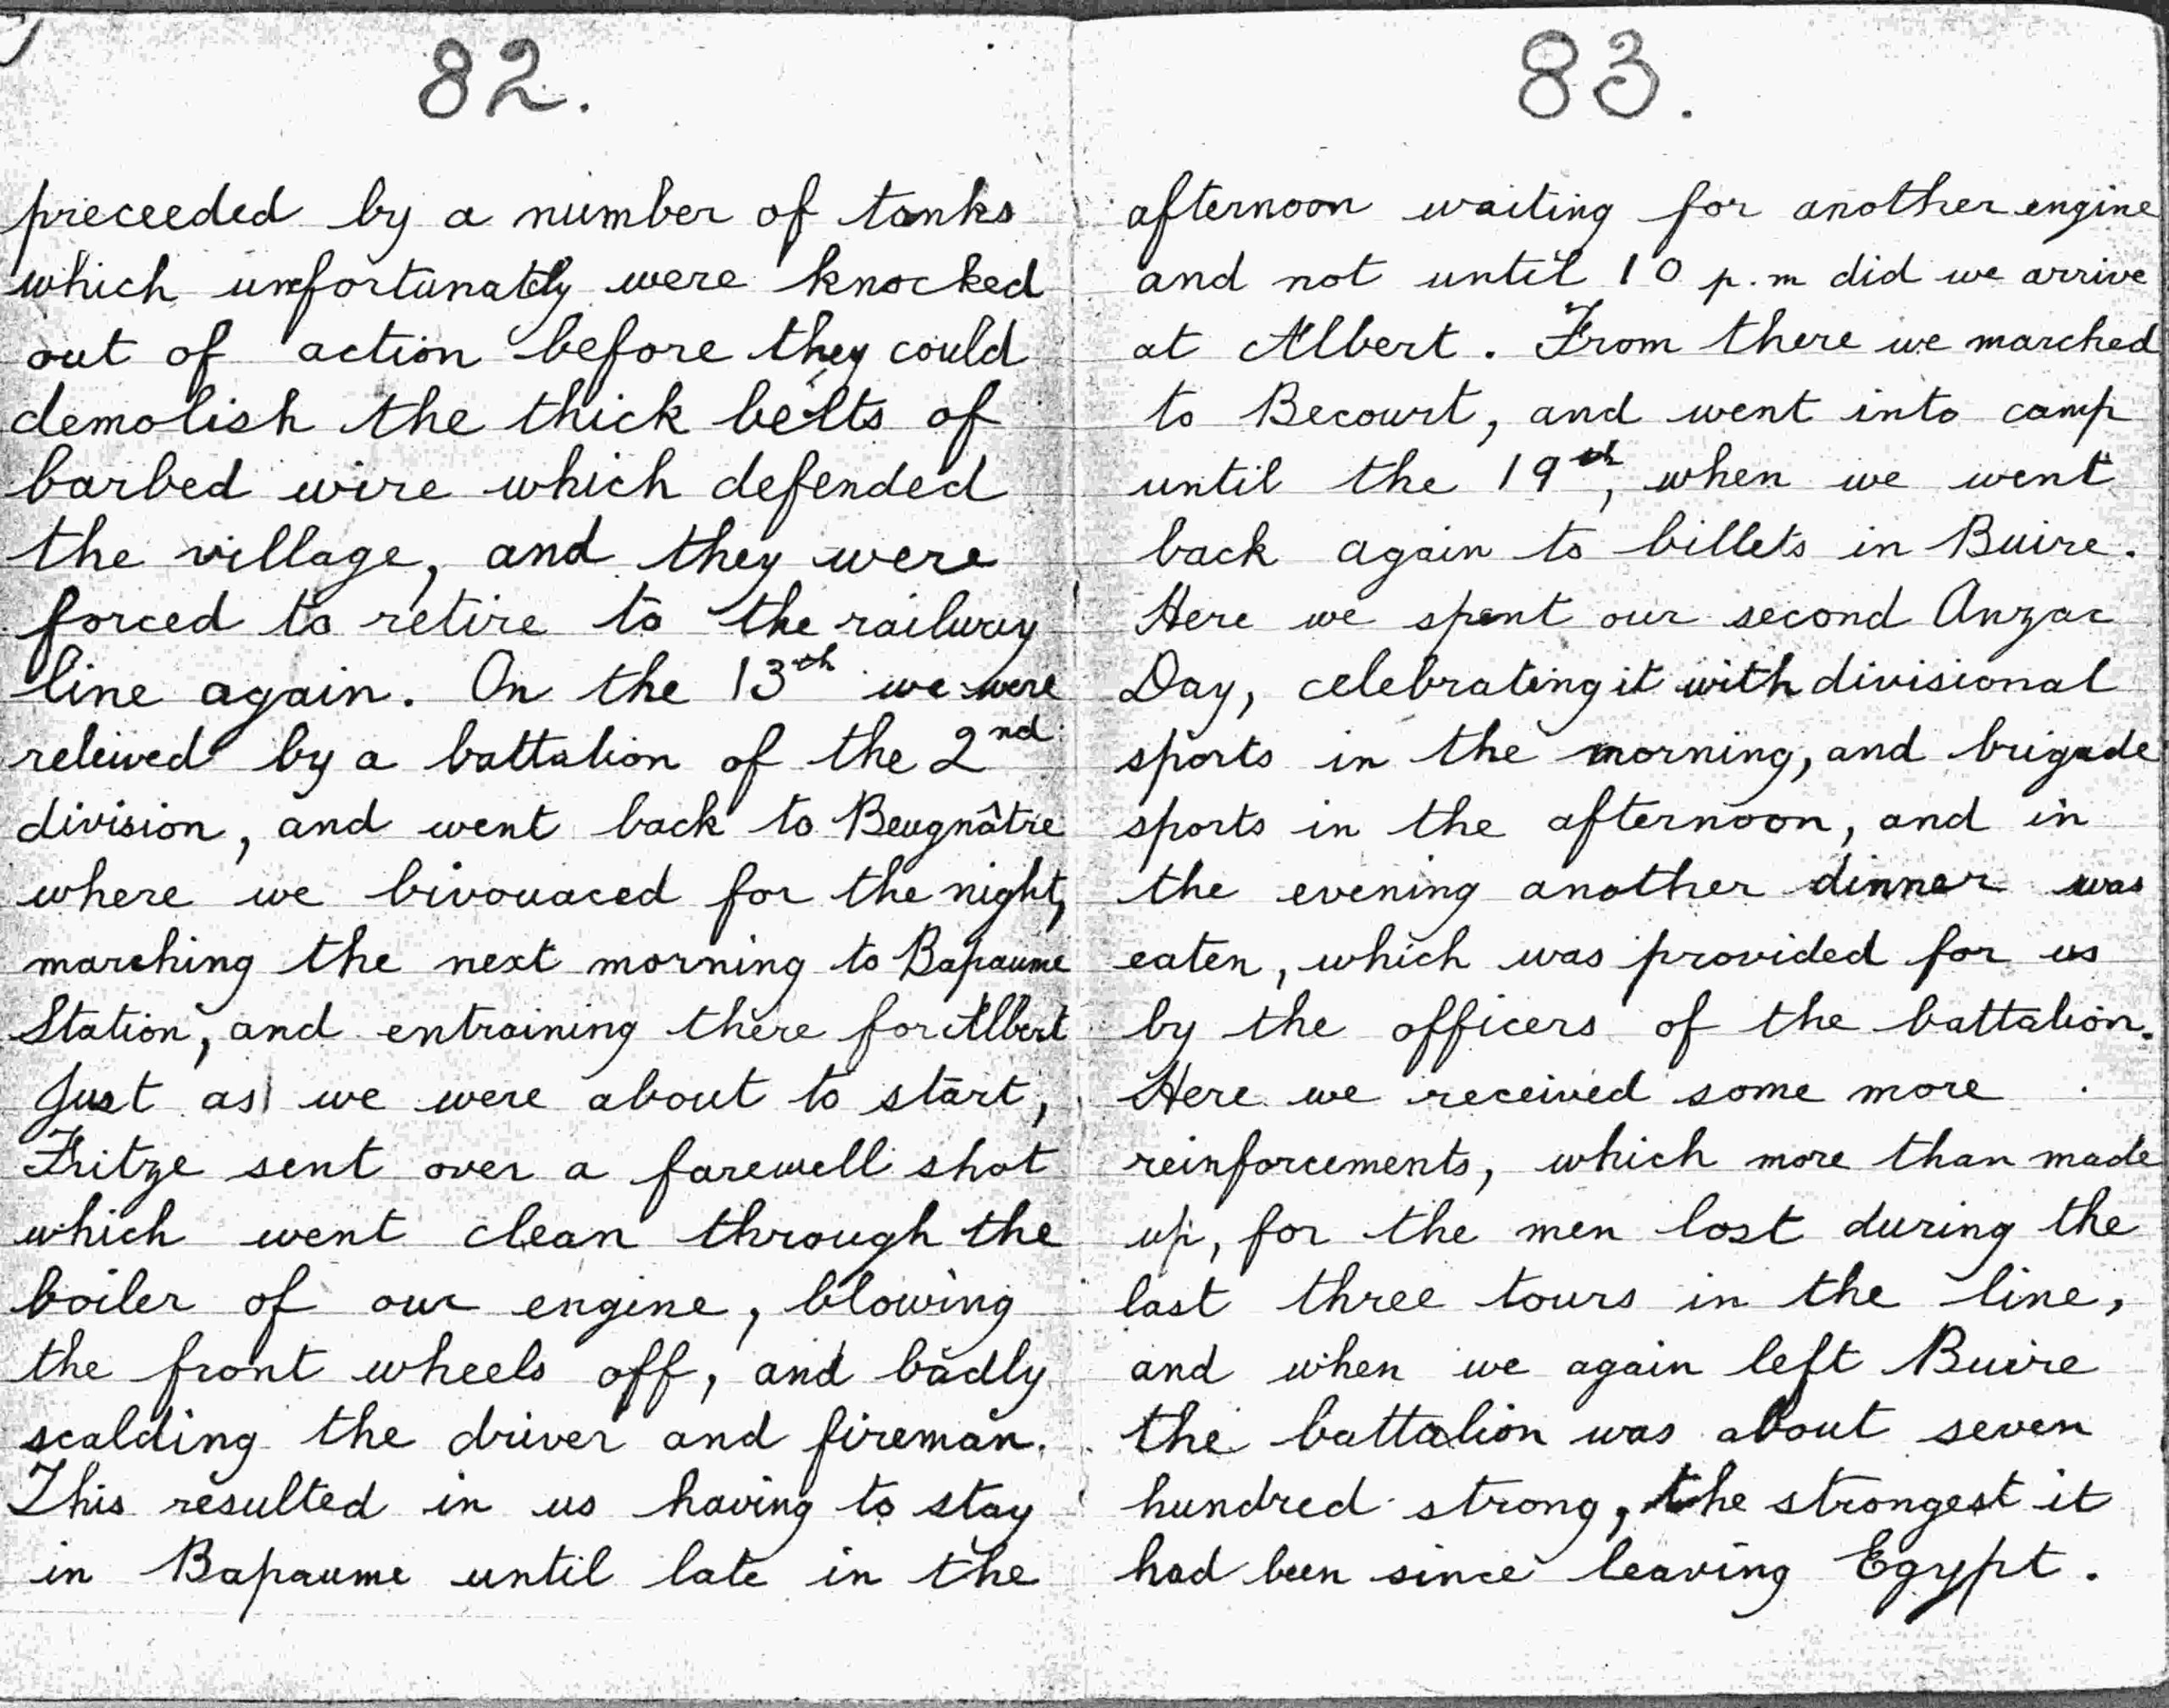 82.
preceeded by a number of tanks
which unfortunatly were knocked
out of action before they could
demolish the thick belts of
barbed wire which defended
the village, and they were
forced to retire to the railway
line again. On the 13th we were
releived by a battalion of the 2nd
division, and went back to Beugnâtre
where we bivouaced for the night,
marching the next morning to Bapaume
Station, and entraining there for Albert
Just as we were about to start,
Fritze sent over a farewell shot
which went clean through the
boiler of our engine, blowing
the front wheels off, and badly
scalding the driver and fireman.
This resulted in us having to stay
in Bapaume until late in the
83.
afternoon waiting for another engine
and not until 10 p.m did we arrive
at Albert. From there we marched
to Becourt, and went into camp
until the 19th, when we went
back again to billets in Buire.
Here we spent our second Anzac
Day, celebrating it with divisional
sports in the morning, and brigade
sports in the afternoon, and in
the evening another dinner was
eaten, which was provided for us
by the officers of the battalion.
Here we received some more
reinforcements, which more than made
up, for the men lost during the
last three tours in the line,
and when we again left Buire
the battalion was about seven
hundred strong, the strongest it
had been since leaving Egypt.